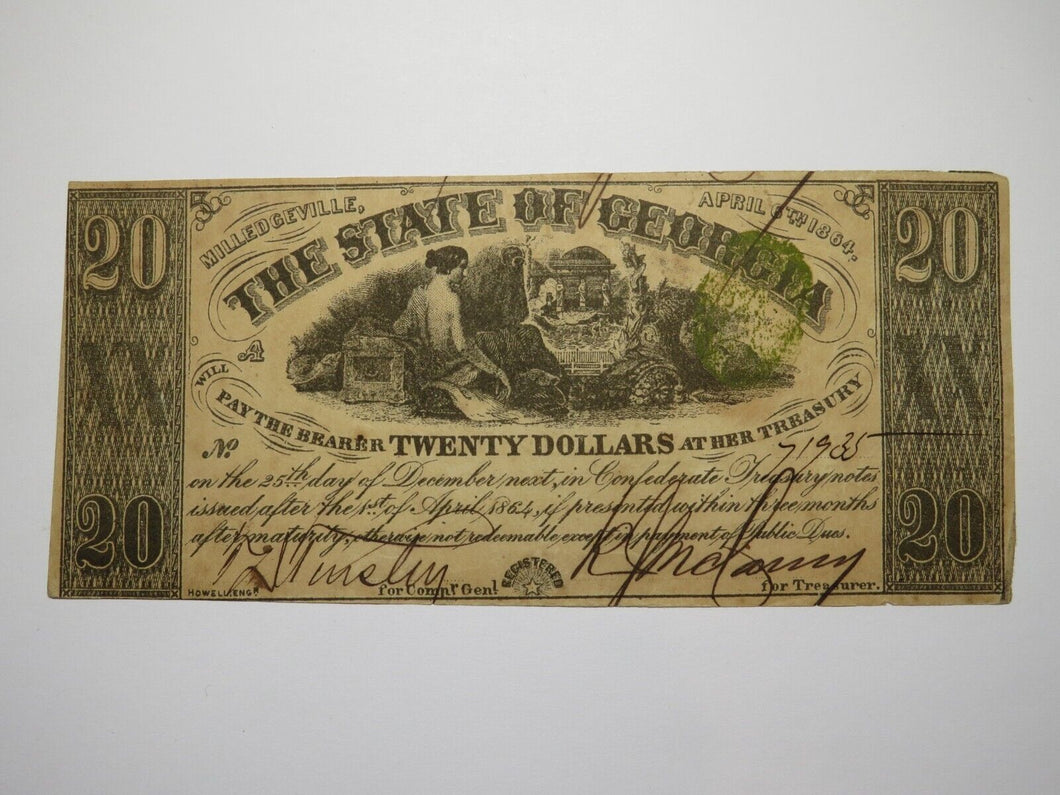 20 20
MILLEDGEVILLE, APRIL 6TH 1864.
THE STATE OF GEORGIA
A
XX XX
WILL PAY THE BEARER TWENTY DOLLARS AT HER TREASURY
No 71935
on the 25th day of December next, in Confederate Treasury notes
issued after the 1st of April 1864, if presented within three months
after maturity, otherwise not redeemable except in payment of Public Dues.
20 20
for Compr Genl REGISTERED for Treasurer.
HOWELL, ENGR